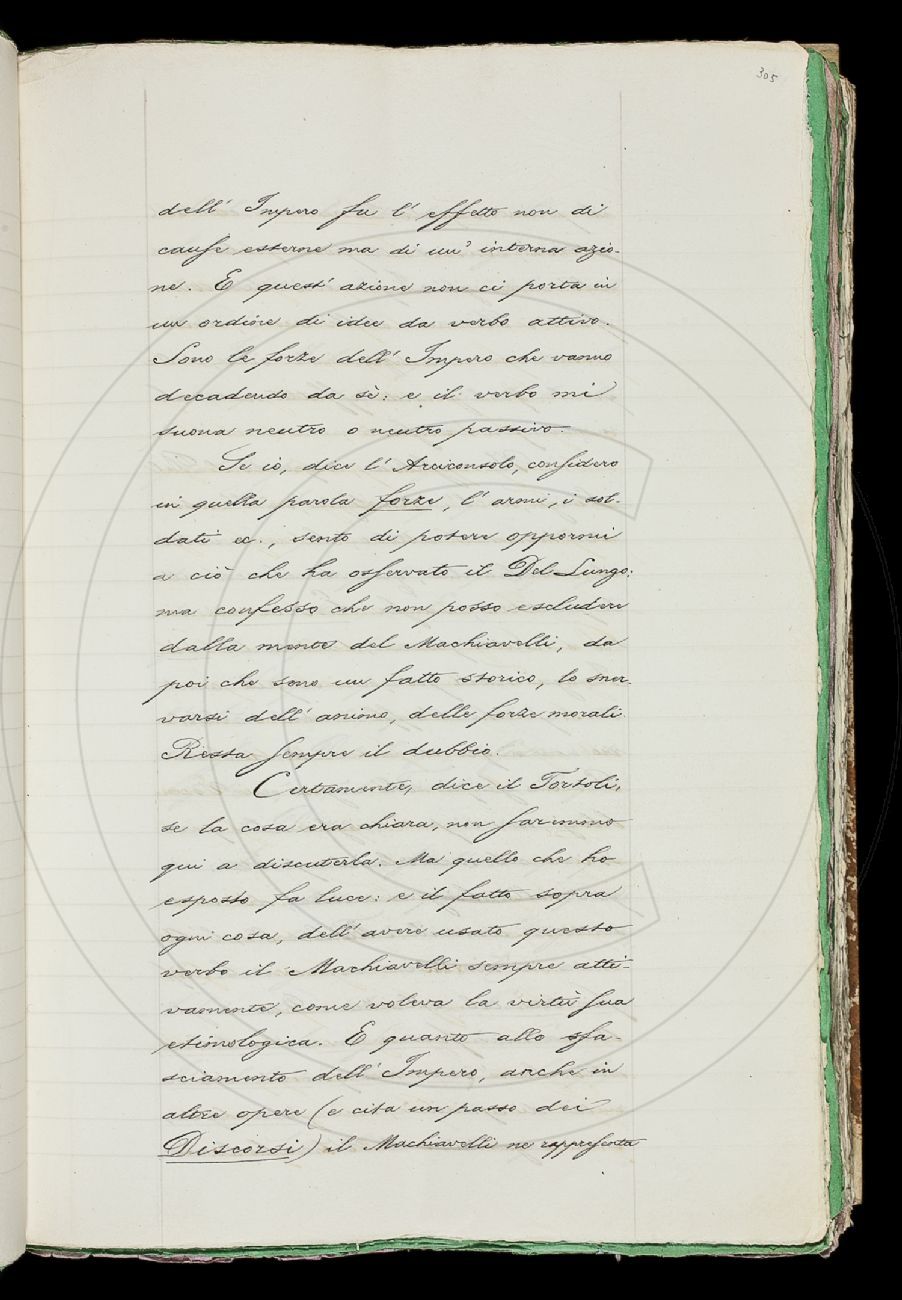 305
dell' Impero fu l' effetto non di
cause esterne ma di un' interna azio-
ne. E quest' azione non ci porta in
un ordine di idee da verbo attivo.
Sono le forze dell' Impero che vanno
decadendo da sè: e il verbo mi
suona neutro o neutro passivo.
Se io, dice l' Arciconsolo, considero
in quella parola forze, l' armi, i sol-
dati ec., sento di potere oppormi
a ciò che ha osservato il Del Lungo:
ma confesso che non posso escludere
dalla mente del Machiavelli, da
poi che sono un fatto storico, lo sner-
varsi dell' animo, delle forze morali.
Resta sempre il dubbio.
Certamente, dice il Tortoli,
se la cosa era chiara, non saremmo
qui a discuterla. Ma quello che ho
esposto fa luce: e il fatto sopra
ogni cosa, dell' avere usato questo
verbo il Machiavelli sempre atti-
vamente, come voleva la virtù sua
etimologica. E quanto allo sfa-
sciamento dell' Impero, anche in
altre opere (e cita un passo dei
Discorsi) il Machiavelli ne rappresenta